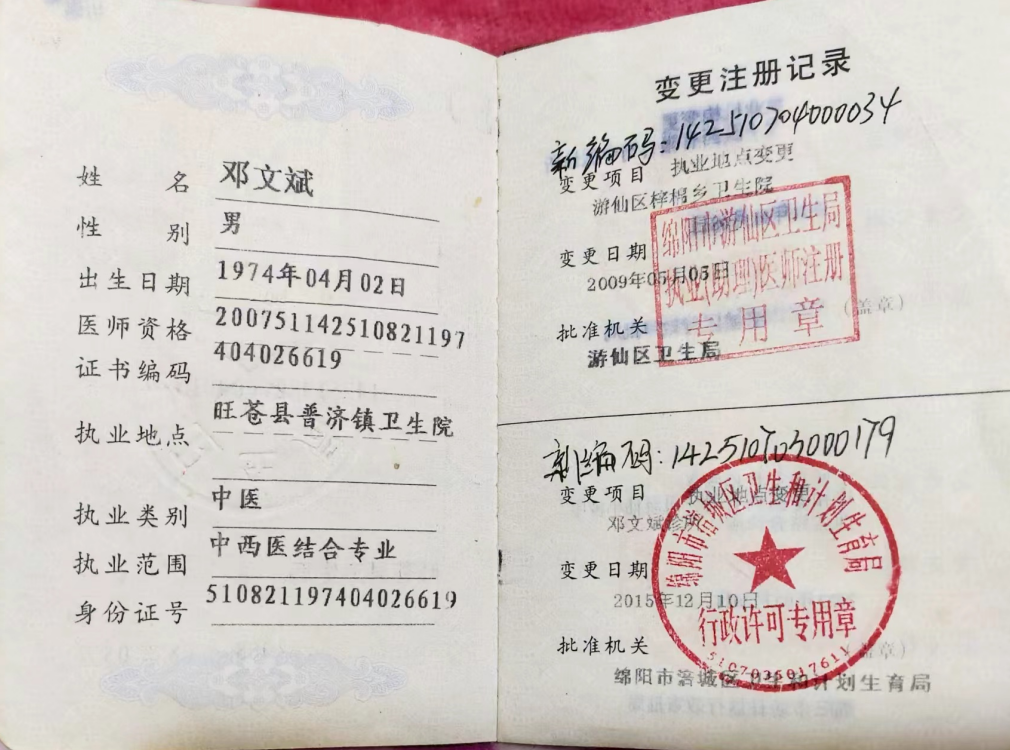 姓名 邓文斌
性别 男
出生日期 1974年04月02日
医师资格 200751142510821197
证书编码 404026619
执业地点 旺苍县普济镇卫生院
执业类别 中医
执业范围 中西医结合专业
身份证号 510821197404026619
变更注册记录
新编码:142510704000034
变更项目 执业地点变更
游仙区梓棉乡卫生院
变更日期
2009年05月05日
批准机关 (盖章)
游仙区卫生局
绵阳市游仙区卫生局
执业(助理)医师注册
专用章
新编码:142510703000179
变更项目 执业地点变更
邓文斌诊所
变更日期
2015年12月10日
批准机关 (盖章)
绵阳市涪城区卫生和计划生育局
绵阳市涪城区卫生和计划生育局
行政许可专用章